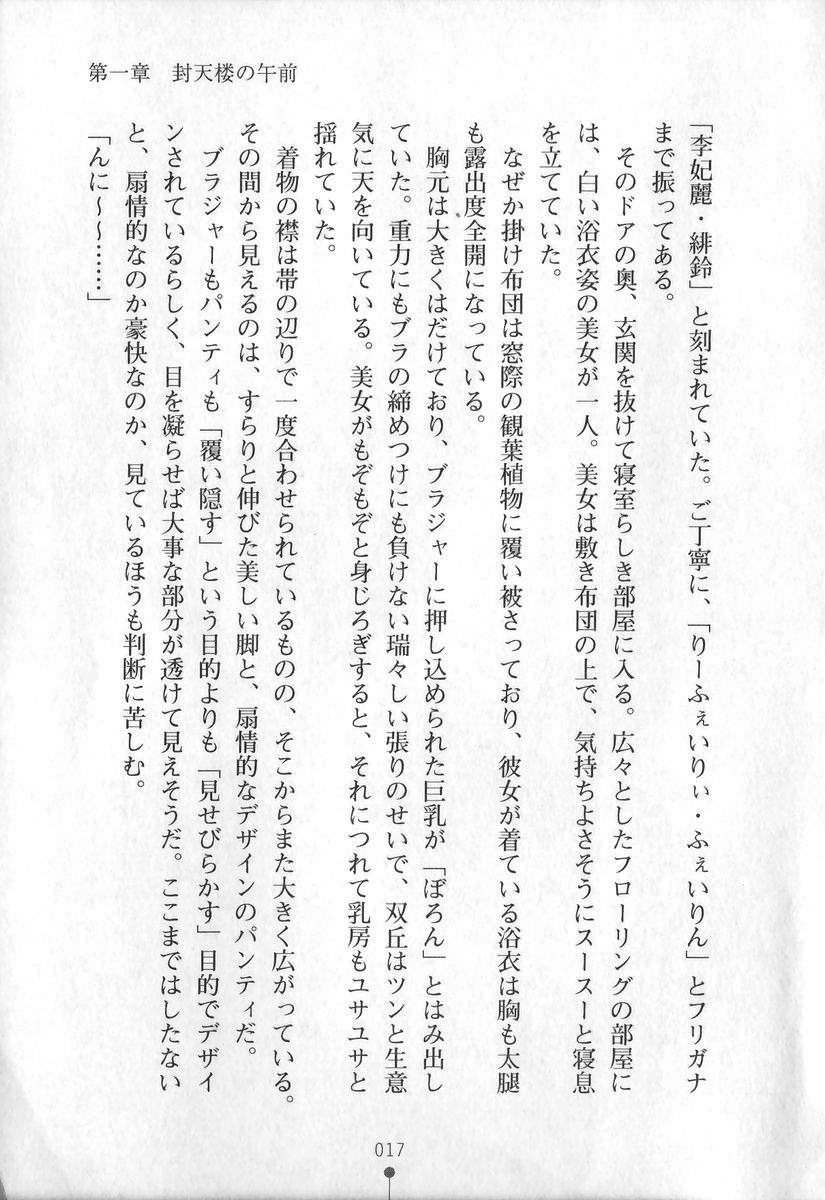 第一章　封天楼の午前
「李妃麗・緋鈴」と刻まれていた。ご丁寧に、「りーふぇいりぃ・ふぇいりん」とフリガナ
まで振ってある。
そのドアの奥、玄関を抜けて寝室らしき部屋に入る。広々としたフローリングの部屋に
は、白い浴衣姿の美女が一人。美女は敷き布団の上で、気持ちよさそうにスースーと寝息
を立てていた。
なぜか掛け布団は窓際の観葉植物に覆い被さっており、彼女が着ている浴衣は胸も太腿
も露出度全開になっている。
胸元は大きくはだけており、ブラジャーに押し込められた巨乳が「ぽろん」とはみ出し
ていた。重力にもブラの締めつけにも負けない瑞々しい張りのせいで、双丘はツンと生意
気に天を向いている。美女がもぞもぞと身じろぎすると、それにつれて乳房もユサユサと
揺れていた。
着物の襟は帯の辺りで一度合わせられているものの、そこからまた大きく広がっている。
その間から見えるのは、すらりと伸びた美しい脚と、扇情的なデザインのパンティだ。
ブラジャーもパンティも「覆い隠す」という目的よりも「見せびらかす」目的でデザイ
ンされているらしく、目を凝らせば大事な部分が透けて見えそうだ。ここまではしたない
と、扇情的なのか豪快なのか、見ているほうも判断に苦しむ。
「んに〜〜……」
017